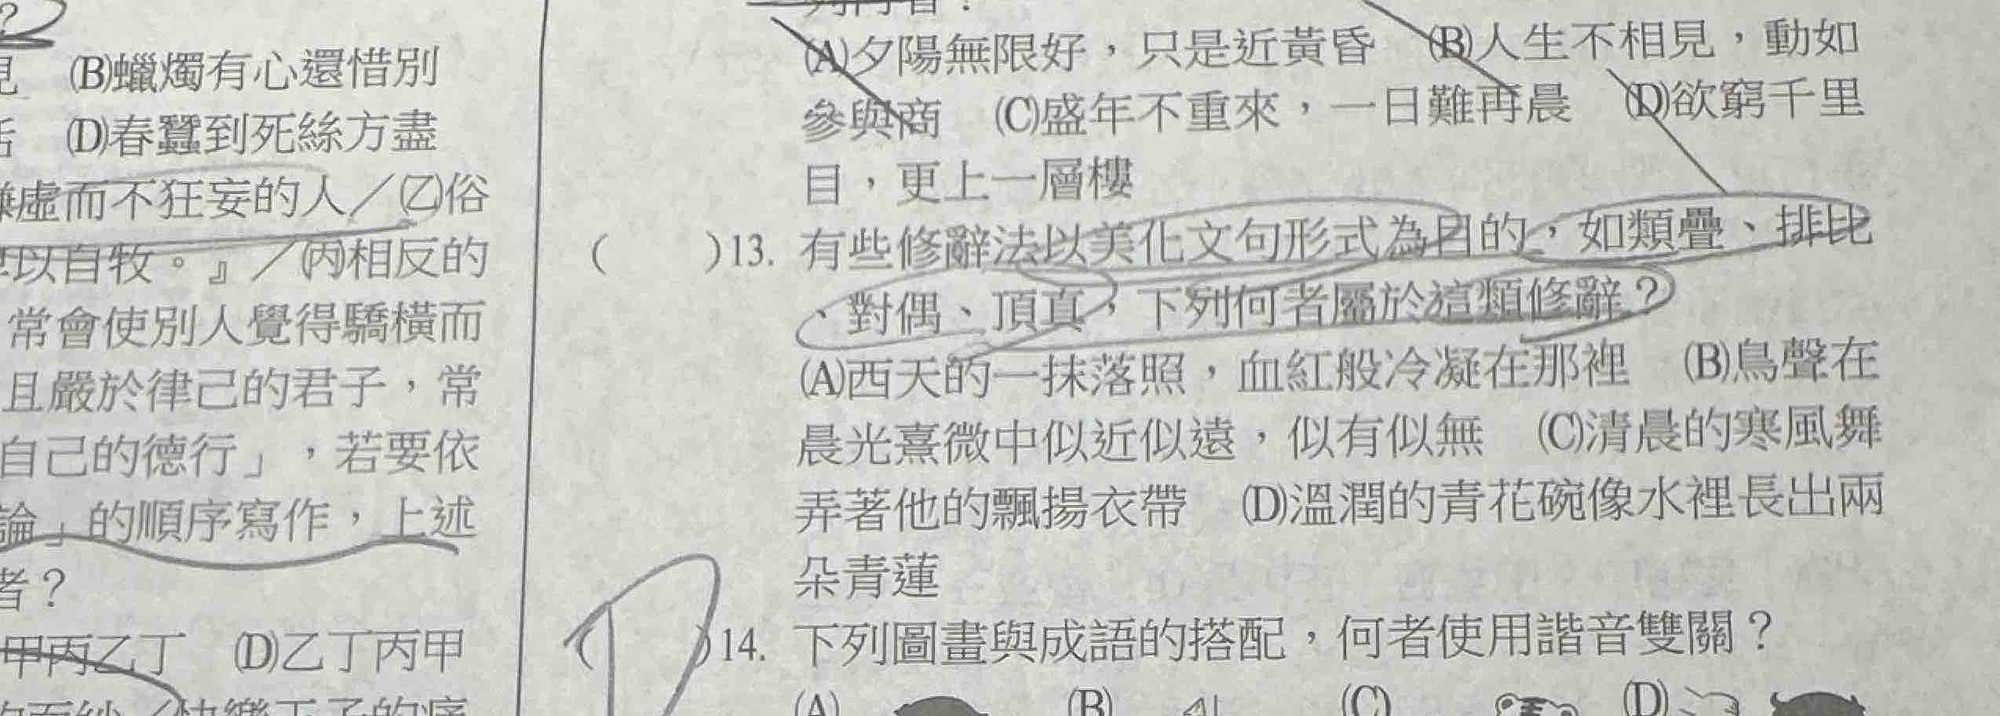 (B)蠟燭有心還惜別
(D)春蠶到死絲方盡
虛而不狂妄的人／(乙)俗
以自牧。』／(丙)相反的
常會使別人覺得驕橫而
且嚴於律己的君子，常
自己的德行」，若要依
論」的順序寫作，上述
者？
甲丙乙丁 (D)乙丁丙甲
(A)夕陽無限好，只是近黃昏 (B)人生不相見，動如
參與商 (C)盛年不重來，一日難再晨 (D)欲窮千里
目，更上一層樓
( )13. 有些修辭法以美化文句形式為目的，如類疊、排比
、對偶、頂真，下列何者屬於這類修辭？
(A)西天的一抹落照，血紅般冷凝在那裡 (B)鳥聲在
晨光熹微中似近似遠，似有似無 (C)清晨的寒風舞
弄著他的飄揚衣帶 (D)溫潤的青花碗像水裡長出兩
朵青蓮
(D)14. 下列圖畫與成語的搭配，何者使用諧音雙關？
(A) (B) (C) (D)